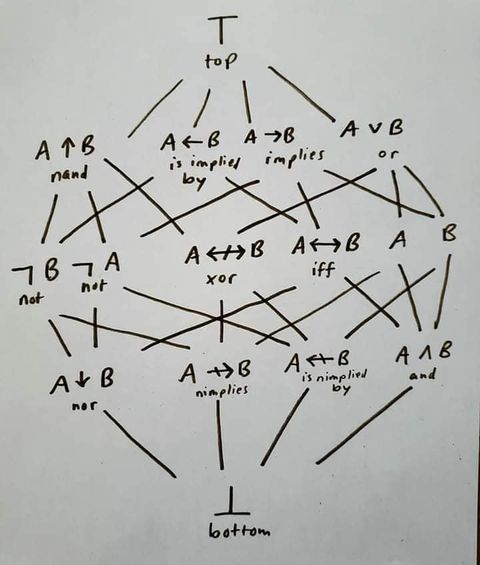 ⊤
top
A ↑ B
nand
A ← B
is implied
by
A → B
implies
A ∨ B
or
¬ B
not
¬ A
not
A ↮ B
xor
A ↔ B
iff
A
B
A ↓ B
nor
A ↛ B
nimplies
A ↚ B
is nimplied
by
A ∧ B
and
⊥
bottom